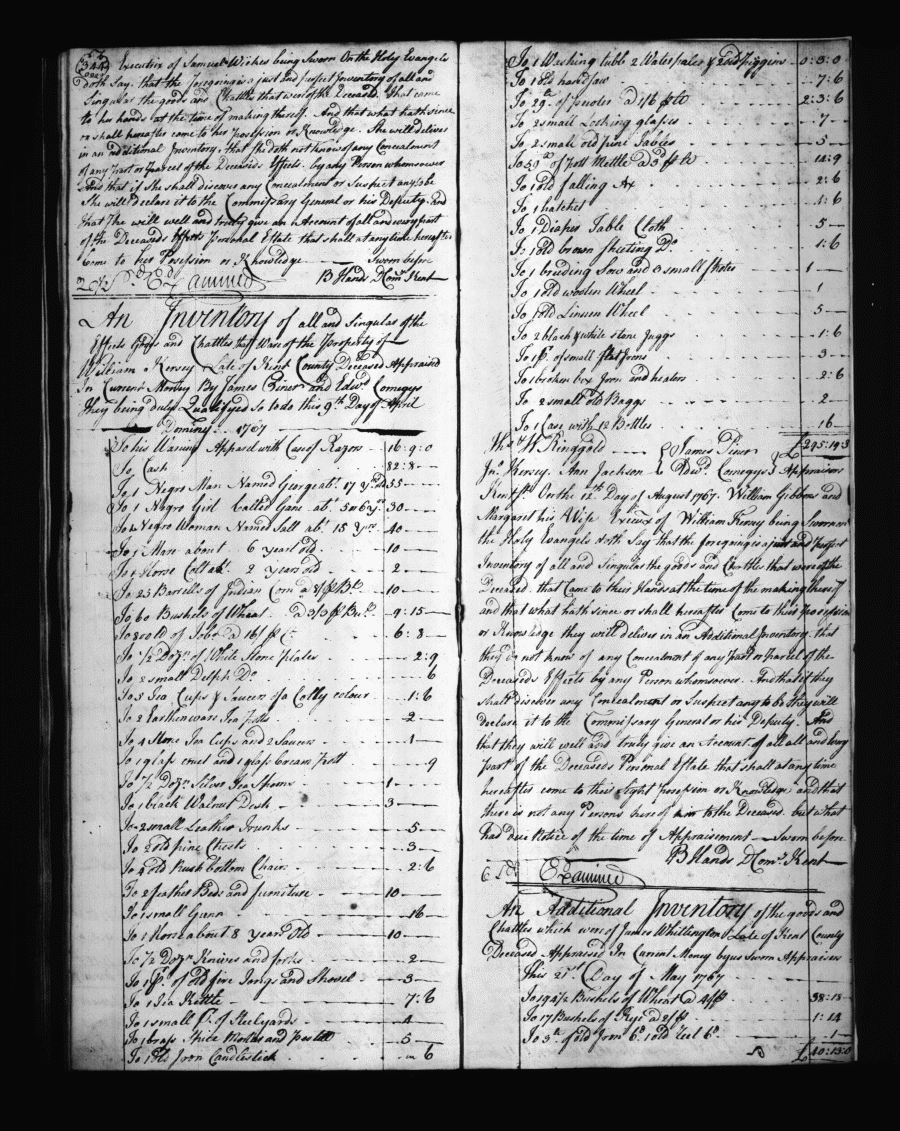 344
Executrix of Samuel Wickes being Sworn On the Holy Evangels
doth Say. that the foregoing is a just and perfect Inventory of all and
Singular the goods and Chattles that were of the Deceased. that came
to her hands at the time of making thereof. And that what hath since
or shall hereafter come to her Possession or Knowledge. She will deliver
in an additional Inventory, that she doth not know of any Concealment
of any part or Parcel of the Deceaseds Effects. by any Person whomsoever
And that if She shall discover any Concealment or Suspect any to be
She will declare it to the Commissary General or his Deputy. And
that She will well and truly give an Account of all and every part
of the Deceaseds Personal Estate that shall at any time hereafter
Come to her Possession or Knowledge Sworn before
Examined B Hands D Comry Kent
An Inventory of all and Singular the
Effects Goods and Chattles that Ware of the Property of
William Kersey Late of Kent County Deceased Appraised
In Current Money By James Piner and Edwd Comegys
They being duly Qualifyed So to do this 9th Day of April
Dominy 1767
To his Waring Apparel with Case of Razors 16..9..0
To Cash 82..8
To 1 Negro Man Named George abt 17 yrs old 55
To 1 Negro Girl Called Jane abt 5 or 6 yrs 30
To 1 Negro Woman Named Sall abt 15 Years 40
To 1 Mare about 6 years old 10
To 1 Horse Colt abt 2 years old 2
To 25 Barrells of Indian Corn a 8/ P Bl 10
To 60 Bushels of Wheat a 3/3 P Bus. 9..15
To 800 lb of Tobo a 16/ P C 6..8
To 1/2 Dozn of White Stone Plates 2..9
To 2 small Delph Do 6
To 3 Tea Cups & Saucers Colly colour 1..6
To 2 Earthenware Tea Potts 2
To 4 Stone Tea Cups and 2 Saucers 1
To 1 glass cruet and 1 glass Cream pott 9
To 1/2 Dozn Silver Tea Spoons 1
To 1 black Walnut Desk 3
To 2 small Leather Trunks 5
To 2 old pine Chests 3
To 4 old Rush bottom Chairs 2..6
To 2 feather Beds and furniture 10
To 1 small Gunn 16
To 1 Horse about 8 years Old 10
To 1/2 Dozn Knives and forks 2
To 1 Pr. of old fire Tongs and Shovel 3
To 1 Tea Kettle 7..6
To 1 small Pr of Steelyards 4
To 1 brass Spice Mortar and Pestell 5
To 1 Old Iron Candlestick 6
To 1 Washing tubb 2 Water pales & 2 old piggins 0..3..0
To 1 old handsaw 7..6
To 29 lb of pewter a 1/6 P lb 2..3..6
To 2 small Looking glasses 7
To 2 small old pine Tables 5
To 59 lb of Pott Mettle a 3d P lb 14..9
To 1 old falling Ax 2..6
To 1 hatchet 1..6
To 1 Diaper Table Cloth 5
To 1 old brown Sheeting Do 1..6
To 1 breeding Sow and 3 small Shotes 1
To 1 old woolen Wheel 1
To 1 old Linnen Wheel 5
To 2 black & white stone Juggs 1..6
To 1 Pr. of small flat Irons 3
To 1 broken box Iron and heaters 2..6
To 2 small old Baggs 2
To 1 Case with 12 Bottles 16
Wm & W Ringgold James Piner £295..19..3
Jno Kersey. Ann Jackson Edwd. Comegys Appraisors
Kent Ss On the 12th Day of August 1767. William Gibbons and
Margaret his Wife Execux of William Kersey being Sworn on
the Holy Evangels doth Say that the foregoing is a just and perfect
Inventory of all and Singular the goods and Chattles that were of the
Deceased. that Came to their Hands at the time of the making thereof
and that what hath since or shall hereafter Come to their possession
or Knowledge they will deliver in an Additional Inventory. that
they do not know of any Concealment of any Part or Parcel of the
Deceaseds Effects by any Person whomsoever. And that if they
shall discover any Concealment or Suspect any to be they will
declare it to the Commissary General or his Deputy. And
that they will well and truly give an Account of all all and every
part of the Deceaseds Personal Estate that shall at any time
hereafter come to their Sight possession or Knowledge and that
there is not any Persons here of kin to the Deceased. but what
had due Notice of the time of Appraisement Sworn before
B Hands D Comry Kent
Examined
An Additional Inventory of the goods and
Chattles which were of James Whittington Late of Kent County
Deceased Appraised In Current Money by us Sworn Appraisers
this 21st Day of May 1767
To 194 1/2 Bushels of Wheat a 4/ P 38..18
To 17 Bushels of Rye a 2/ P 1..14
To 3 lb of old Iron 6d 1 old Reel 6d 1
£40..13..0